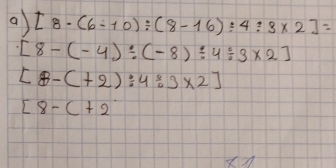 a) [8-(6-10)÷(8-16)÷4÷3×2]=
[8-(-4)÷(-8)÷4÷3×2]
[8-(+2)÷4÷3×2]
[8-(+2